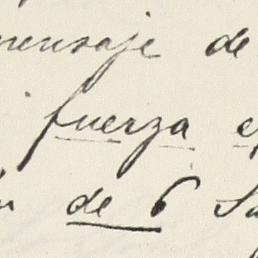 mensaje de
fuerza
de 6